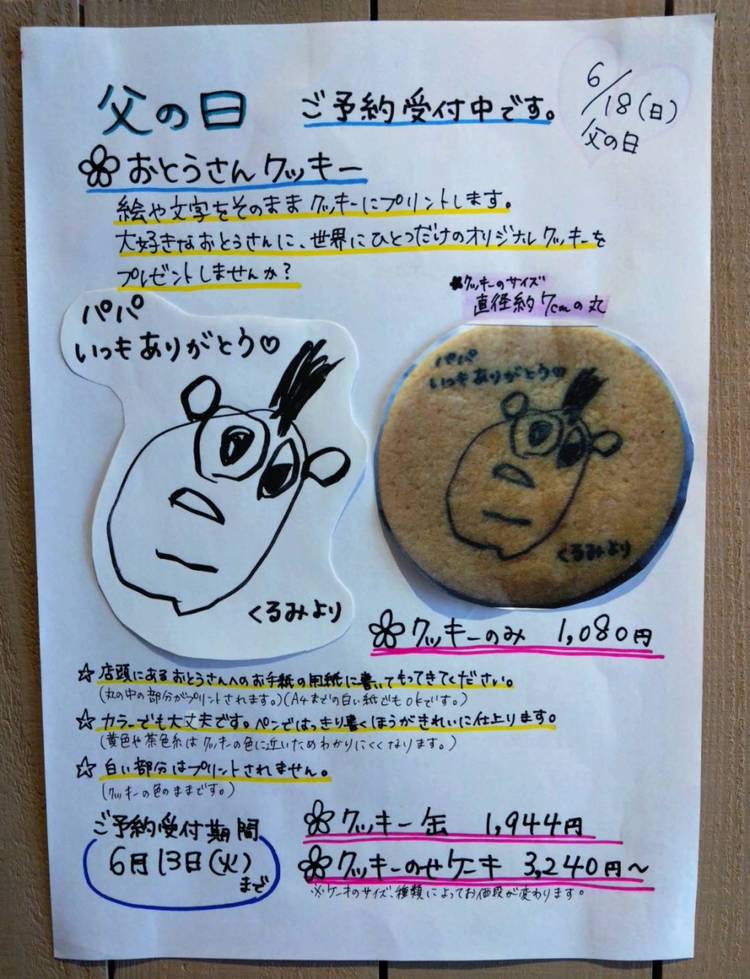 父の日 ご予約受付中です。
6/18(日)
父の日
おとうさんクッキー
絵や文字をそのままクッキーにプリントします。
大好きなおとうさんに、世界にひとつだけのオリジナルクッキーを
プレゼントしませんか?
クッキーのサイズ
直径約7cmの丸
パパ
いつもありがとう♡
くるみより
パパ
いつもありがとう♡
くるみより
クッキーのみ 1,080円
☆ 店頭にあるおとうさんへのお手紙の用紙に書いてもってきてください。
(丸の中の部分がプリントされます。)(A4までの白い紙でもokです。)
☆ カラーでも大丈夫です。ペンではっきり書くほうがきれいに仕上ります。
(黄色や茶色系はクッキーの色に近いためわかりにくくなります。)
☆ 白い部分はプリントされません。
(クッキーの色のままです。)
ご予約受付期間
6月13日(火)
まで
クッキー缶 1,944円
クッキーのせケーキ 3,240円〜
※ケーキのサイズ、種類によってお値段が変わります。